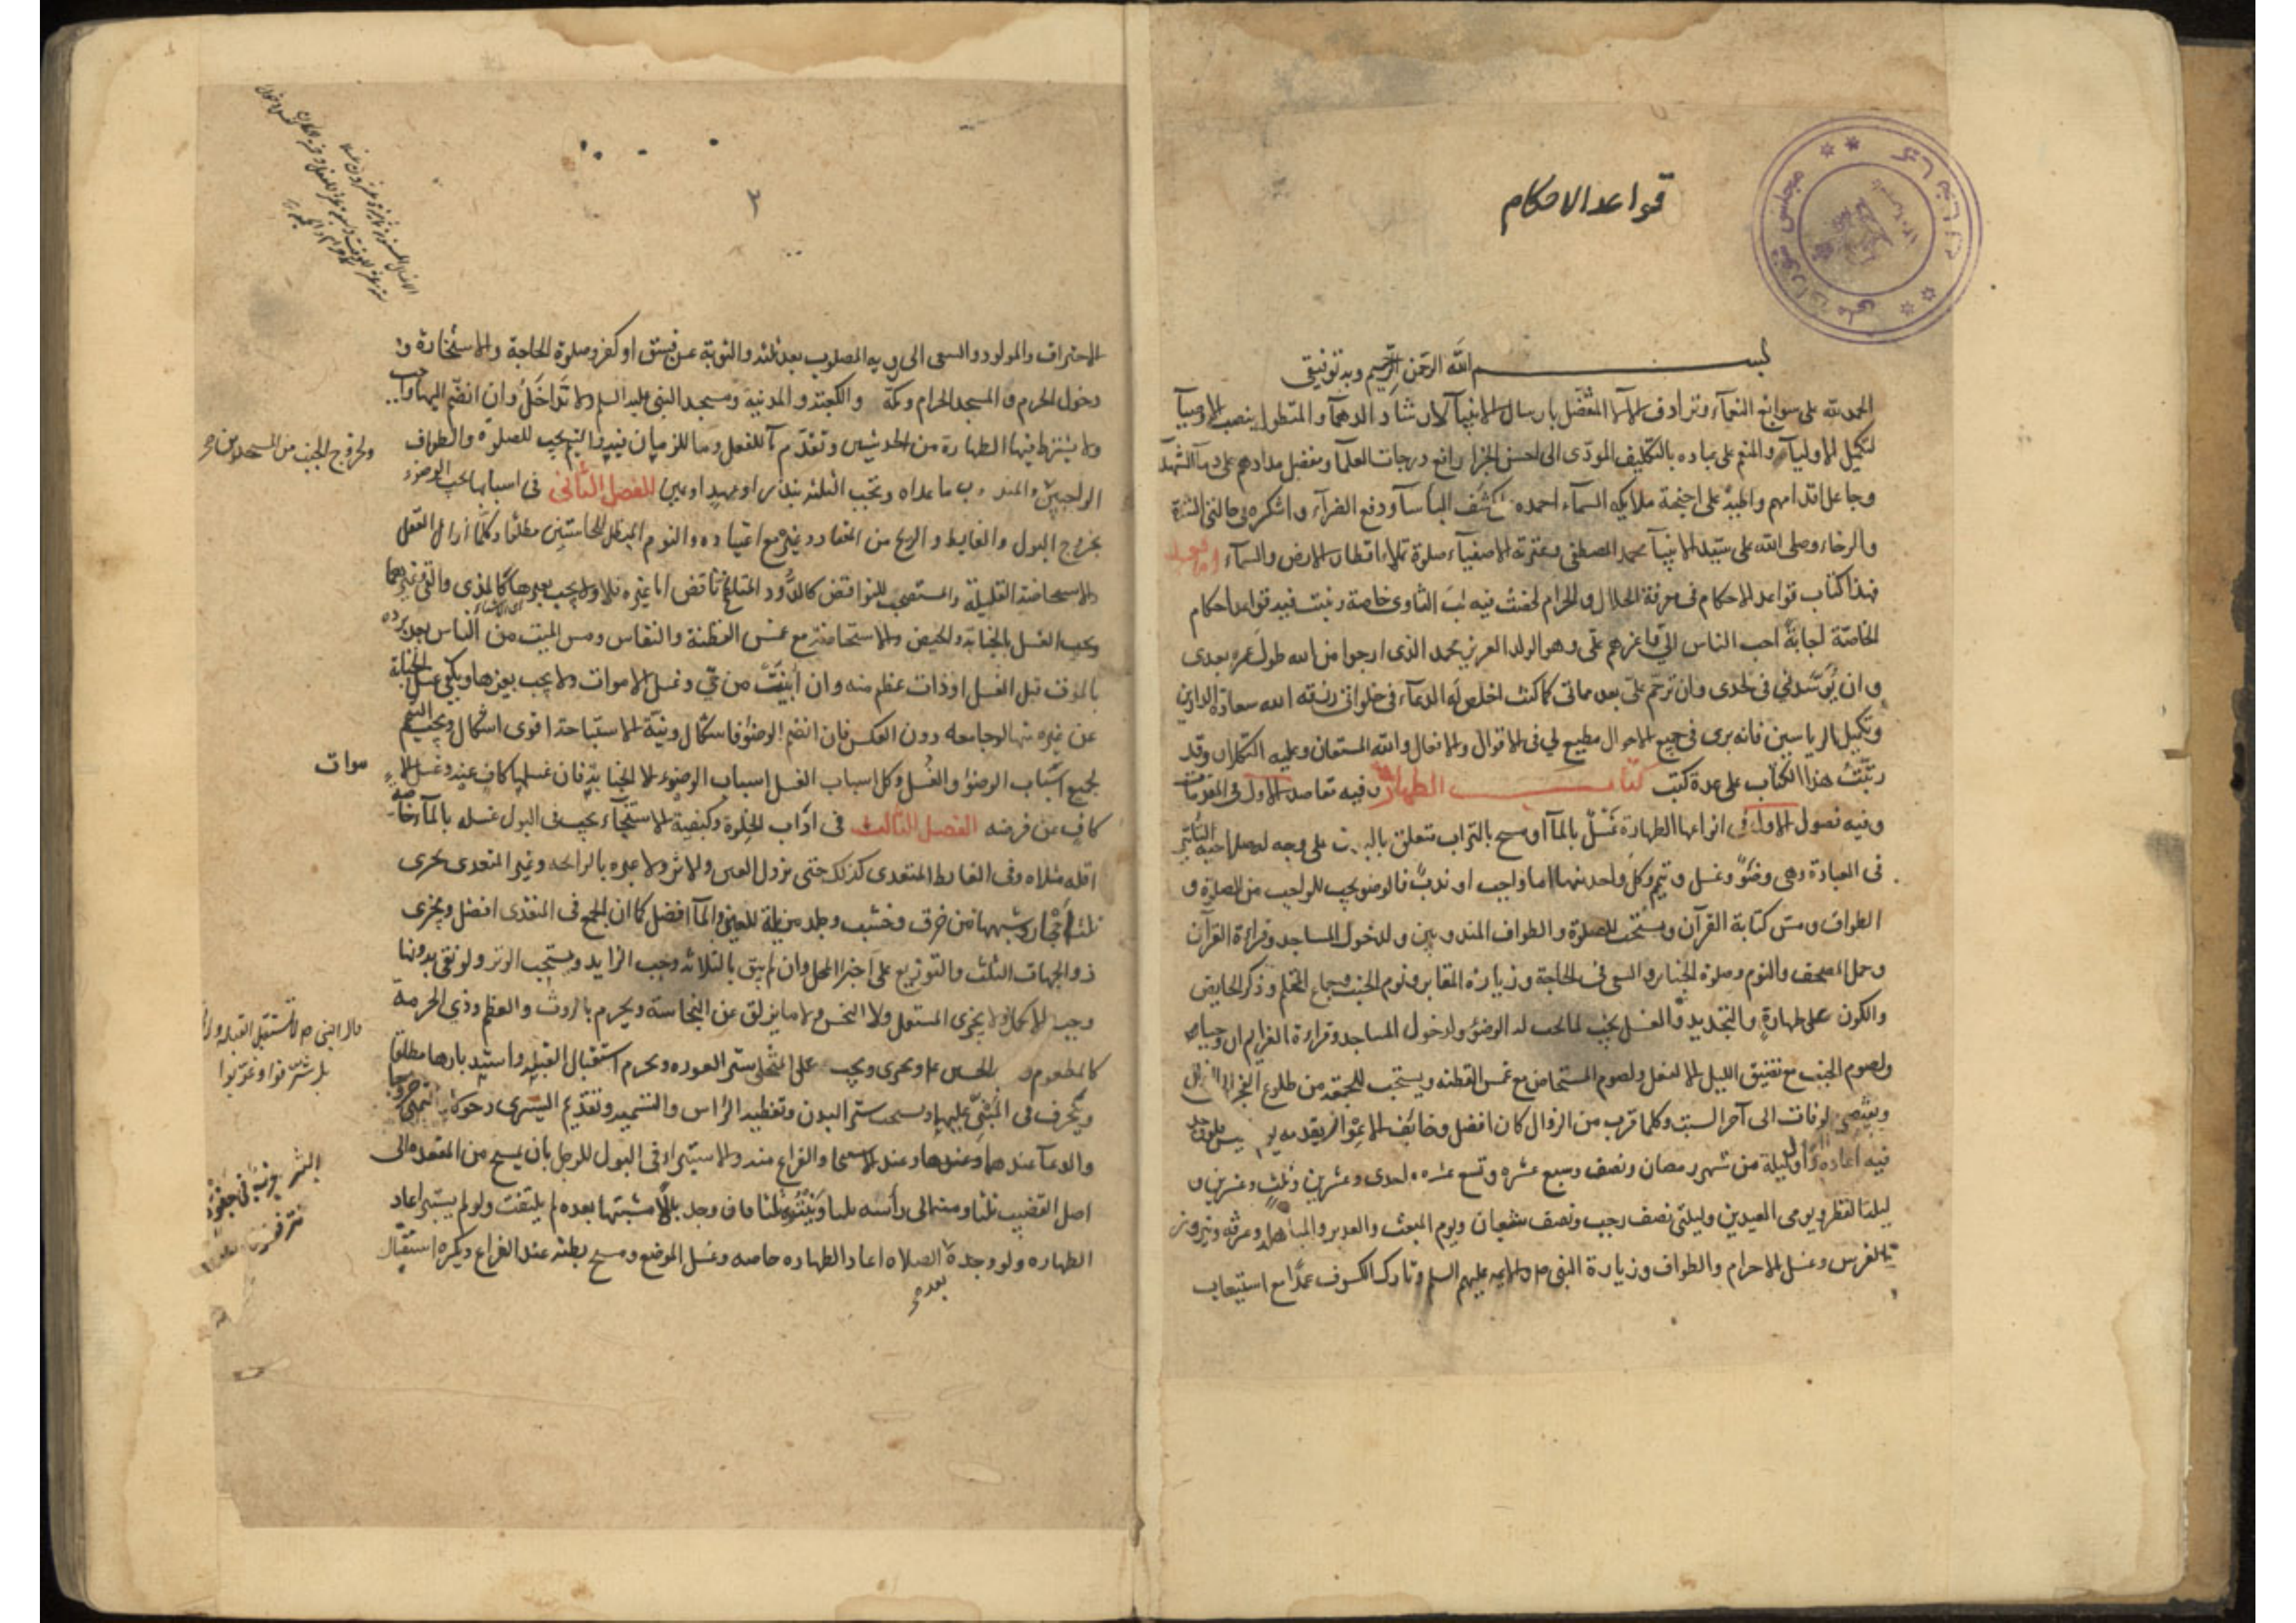 قواعد الاحكام
بسم الله الرحمن الرحيم وبه توفيقي
الحمد لله على سوابغ النعمآء وترادف الآلآء المتفضل بارسال الانبيآء لارشاد الدهمآء والمتطول بنصب الاوصيآء
لتكميل الاوليآء والمنعم على عباده بالتكليف المودّى الى احسن الجزا رافع درجات العلمآ ومفضل مدادهم على دمآء الشهدآ
وجاعل اقدامهم واطية على اجنحة ملايكه السمآء احمده على كشف البأسآ ودفع الضرآء واشكره في حالتى الشدة
والرخاء وصلى الله على سيد الانبيآ محمد المصطفى وعترته الاصفيآء صلوة تملاء اقطار الارض والسمآء اما بعد
فهذا كتاب قواعد الاحكام فى معرفة الحلال والحرام لخصت فيه لبّ الفتاوى خاصة وبينت فيه قواعد احكام
الخاصّة اجابةً لاحب الناس اليّ واعزهم علّى وهو الولد العزيز محمد الذى ارجوا من الله طول عمره بعدى
وان يُوَسّدني فى لحدى وان ترحّم علىّ بعد مماتى كما كنت اخلص له الدعآء فى خلواتى رزقه الله سعادة الدارين
وتكميل الرياستين فانه برى فى جميع الاحوال مطيع لي فى الاقوال والافعال والله المستعان وعليه التكلان وقد
رتّبتُ هذا الكتاب على عدة كتب كتاب الطهارة وفيه مقاصد الاول فى المقدمات
وفيه فصول الاول فى انواعها الطهارة غسل بالمآ او مسح بالتراب متعلق بالبدن على وجه له صلاحية التاثير
فى العبادة وهى وضوٌ وغسل وتيمم وكل واحد منها اما واجب او ندبٌ فالوضو يجب للواجب من الصلوة و
الطواف ومسّ كتابة القرآن ويستحب للصلوة والطواف المندوبين ولدخول المساجد وقراءة القرآن
وحمل المصحف والنوم وصلوة الجنايز والسعى فى الحاجة وزيارة المقابر ونوم الجنب وجماع المحتلم وذكر الحايض
والكون على طهارةٍ والتجديد والغسل يجب لما يجب له الوضوء ولدخول المساجد وقراءة العزايم ان وجبا
ولصوم الجنب مع تضيق الليل الا لفعل ولصوم المستحاضة مع غمس القطنة ويستحب للجمعة من طلوع الفجر الى الزوال
ويقضى لوفات الى آخر السبت وكلما قرب من الزوال كان افضل وخائف الاعواز يقدمه يوم الخميس فلو وجد
فيه اعاده واول ليلة من شهر رمضان ونصفه وسبع عشره وتسع عشره واحدى وعشرين وثلث وعشرين و
ليلة الفطر ويومى العيدين وليلتى نصف رجب ونصف شعبان ويوم المبعث والغدير والمباهلة وعرفة ونيروز
الفرس وغسل الاحرام والطواف وزيارة النبى ص والايمه عليهم السلم وتارك الكسوف عمدًا مع استيعاب
٢
الاحتراق والمولود والسعى الى رويه المصلوب بعد ثلثه والتوبة عن فسق او كفر وصلوة الحاجة والاستخارة و
دخول الحرم والمسجد الحرام ومكة والكعبة والمدينة ومسجد النبى عليه السلم ولا تداخل وان انضم اليها واجب
ولا يشترط فيها الطهارة من الحدثين وتقدّم ما للفعل وما للزمان فيه والتيمم يجب للصلوة والطواف
الواجبين والمندوب ما عداه وتجب الثلثه بنذر او عهد او يمين الفصل الثانى فى اسبابها يجب الوضوء
بخروج البول والغايط والريح من المعتاد وغيره مع اعتياده والنوم المبطل للحاستين مطلقا وكلما ازال العقل
والاستحاضة القليلة والمستصحب للنواقض كالدُّود المتلطخ ناقض اما غيره فلا ولا يجب بغيرها كالمذى والقئ وغيرهما
ويجب الغسل بالجنابة والحيض والاستحاضة مع غمس القطنة والنفاس ومس الميت من الناس بعد برده
بالموت قبل الغسل او ذات عظم منه وان ابينت من حيّ وغسل الاموات ولا يجب بغيرها ويكفى غسل الجنابة
عن غيره منها لو جامعه دون العكس فان انضم الوضوء فاشكال ونيّة الاستباحة اقوى اشكالا ويجب التيمم
بجميع اسباب الوضوء والغسل وكل اسباب الغسل اسباب الوضوء الا الجنابة فان غسلها كاف عنه وغسل الا
موات
كافٍ عن فرضه الفصل الثالث فى اداب الخلوة وكيفية الاستنجآء يجب فى البول غسله بالمآء خاصة
اقله مثلاه وفى الغايط المتعدى كذلك حتى تزول العين والاثر ولا عبرة بالرايحه وغير المتعدى يجزى
ثلثة احجار وشبهها من خرق وخشب وجلد مزيلة للعين والمآ افضل كما ان الجمع فى المتعدى افضل ويجزى
ذو الجهات الثلث والتوزيع على اجزا المحل وان لم ينق بالثلاثه وجب الزايد ويستحب الوتر ولو نقى بدونها
وجب الاكمال ولا يجزى المستعمل ولا النجس ولا ما يزلق عن النجاسة ويحرم بالروث والعظم وذي الحرمة
كالمطعوم ويجزى ويجب على المتخلى ستر العوره ويحرم استقبال القبلة واستدبارها مطلقا
وينحرف فى المبنىّ عليها ويستحب ستر البدن وتغطية الراس والتسمية وتقديم اليسرى دخولا واليمنى خروجا
والدعآ عندهما وعند الاستنجا والفراغ منه والاستبراء فى البول للرجل بان يمسح من المقعده الى
اصل القضيب ثلثا ومنه الى رأسه ثلثا وينتره ثلثا فان وجد بللًا مشتبها بعده لم يلتفت ولو لم يستبر اعاد
الطهاره ولو وجده الصلاه اعاد الطهاره خاصه وغسل الموضع ومسح بطنه عند الفراغ ويكره استقبال
بعد
ولخروج الجنب من المسجدين
قال النبى ص لا تستقبل القبلة
بل شرّقوا او غرّبوا